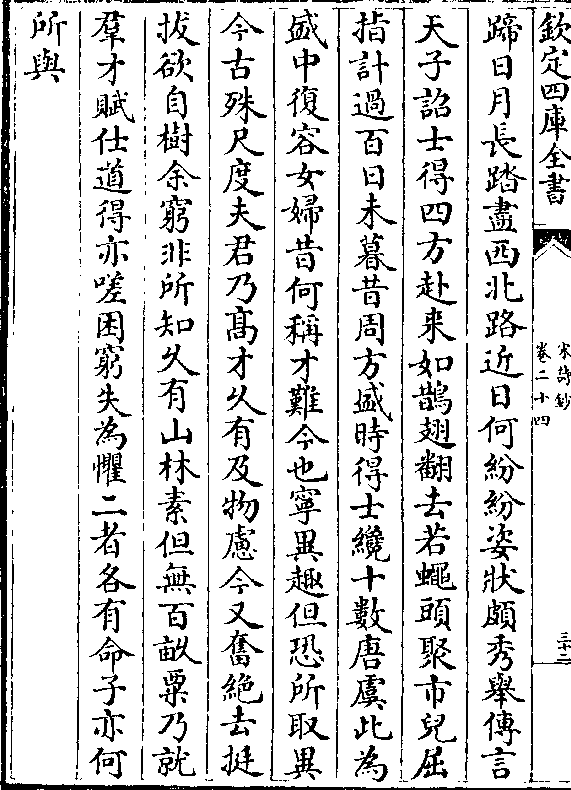 欽定四庫全書
宋詩鈔
卷二十四
三十二
蹄日月長踏盡西北路近日何紛紛姿狀頗秀舉傳言
天子詔士得四方赴来如鵲翅翻去若蠅頭聚市兒屈
指計過百日未暮昔周方盛時得士纔十數唐虞此為
盛中復容女婦昔何稱才難今也寧異趣但恐所取異
今古殊尺度夫君乃髙才乆有及物慮今又奮絶去挺
拔欲自樹余窮非所知乆有山林素但無百畝粟乃就
羣才賦仕道得亦嗟困窮失為懼二者各有命子亦何
所與